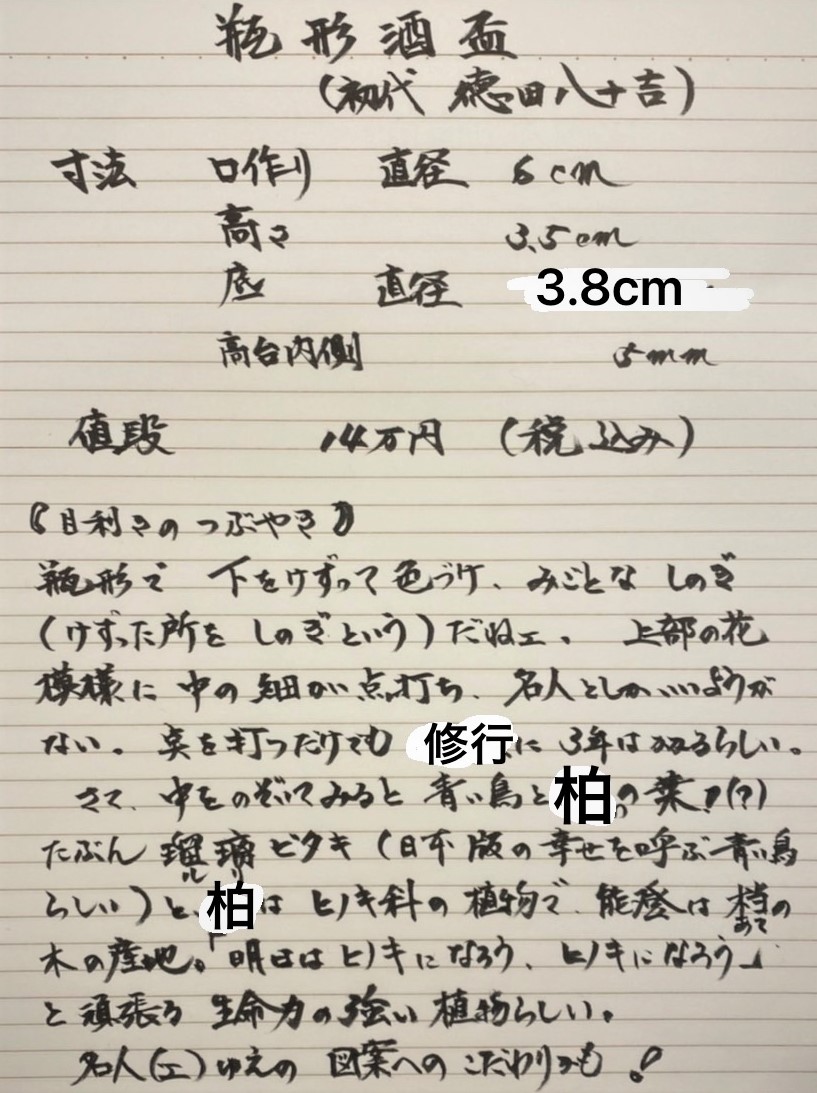 瓶形酒盃
(初代 徳田八十吉)
寸法 口作り 直径 6cm
高さ 3.5cm
底 直径 3.8cm
高台内側 5mm
値段 14万円 (税込み)
《目利きのつぶやき》
瓶形で 下をけずって色づけ、みごとな しのぎ
(けずった所を しのぎという)だねェ。 上部の花
模様に 中の細かい点打ち、名人としかいいようが
ない。点を打つだけでも 修行に 3年はかかるらしい。
さて、中をのぞいてみると 青い鳥と柏の葉!(?)
たぶん 瑠璃ビタキ (日本版の幸せを呼ぶ青い鳥
らしい)と、柏は ヒノキ科の植物で、能登は 档の
ルリ
あて
木の産地。「明日はヒノキになろう、ヒノキになろう」
と頑張る 生命力の強い植物らしい。
名人(工)ゆえの 図案へのこだわりかも!